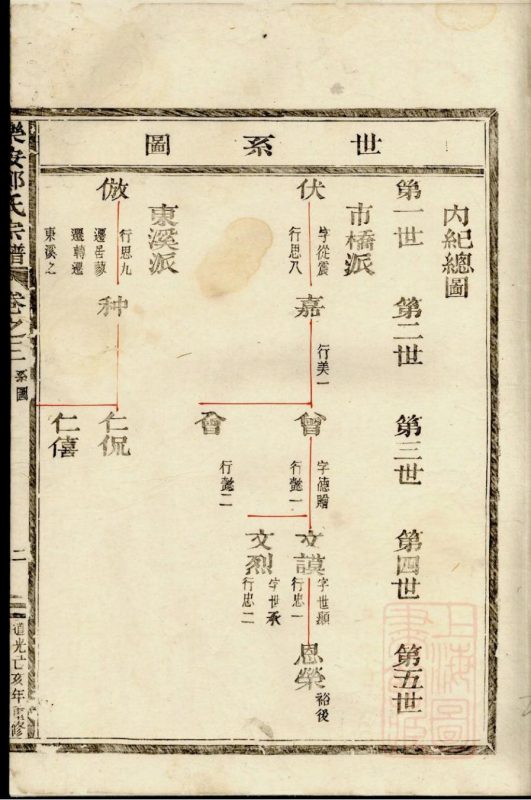 世系圖
內紀總圖
第一世
第二世
第三世
第四世
第五世
市橋派
伏
字從震
行思八
嘉
行美一
曾
字德贈
行懿一
文謨
字世顯
行忠一
恩榮
裕後
文烈
字世承
行忠二
會
行懿二
東溪派
倣
行思九
遷苦蔆
遷轉遷
東溪之
种
仁侃
仁僖
氏宗譜
卷之三
系圖
二
道光亡亥年
修
上海圖